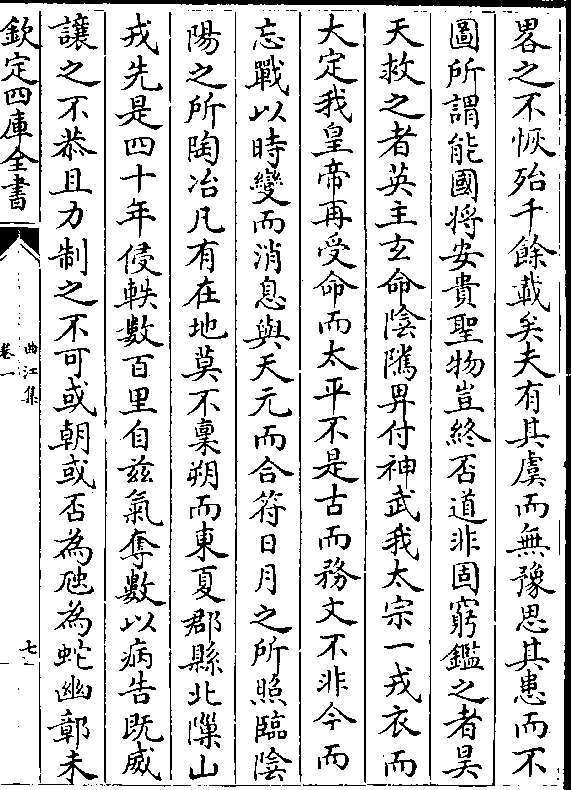 畧之不恢殆千餘載矣夫有其虞而無豫思其患而不
圖所謂能國将安貴聖物豈終否道非固窮鑑之者昊
天救之者英主玄命隂隲畀付神武我太宗一戎衣而
大定我皇帝再受命而太平不是古而務文不非今而
忘戰以時變而消息與天元而合符日月之所照臨隂
陽之所陶冶凡有在地莫不稟朔而東夏郡縣北㒹山
戎先是四十年侵軼數百里自兹氣奪數以病告既威
讓之不恭且力制之不可或朝或否為虺為蛇幽鄣未
欽定四庫全書
曲江集
卷一
七